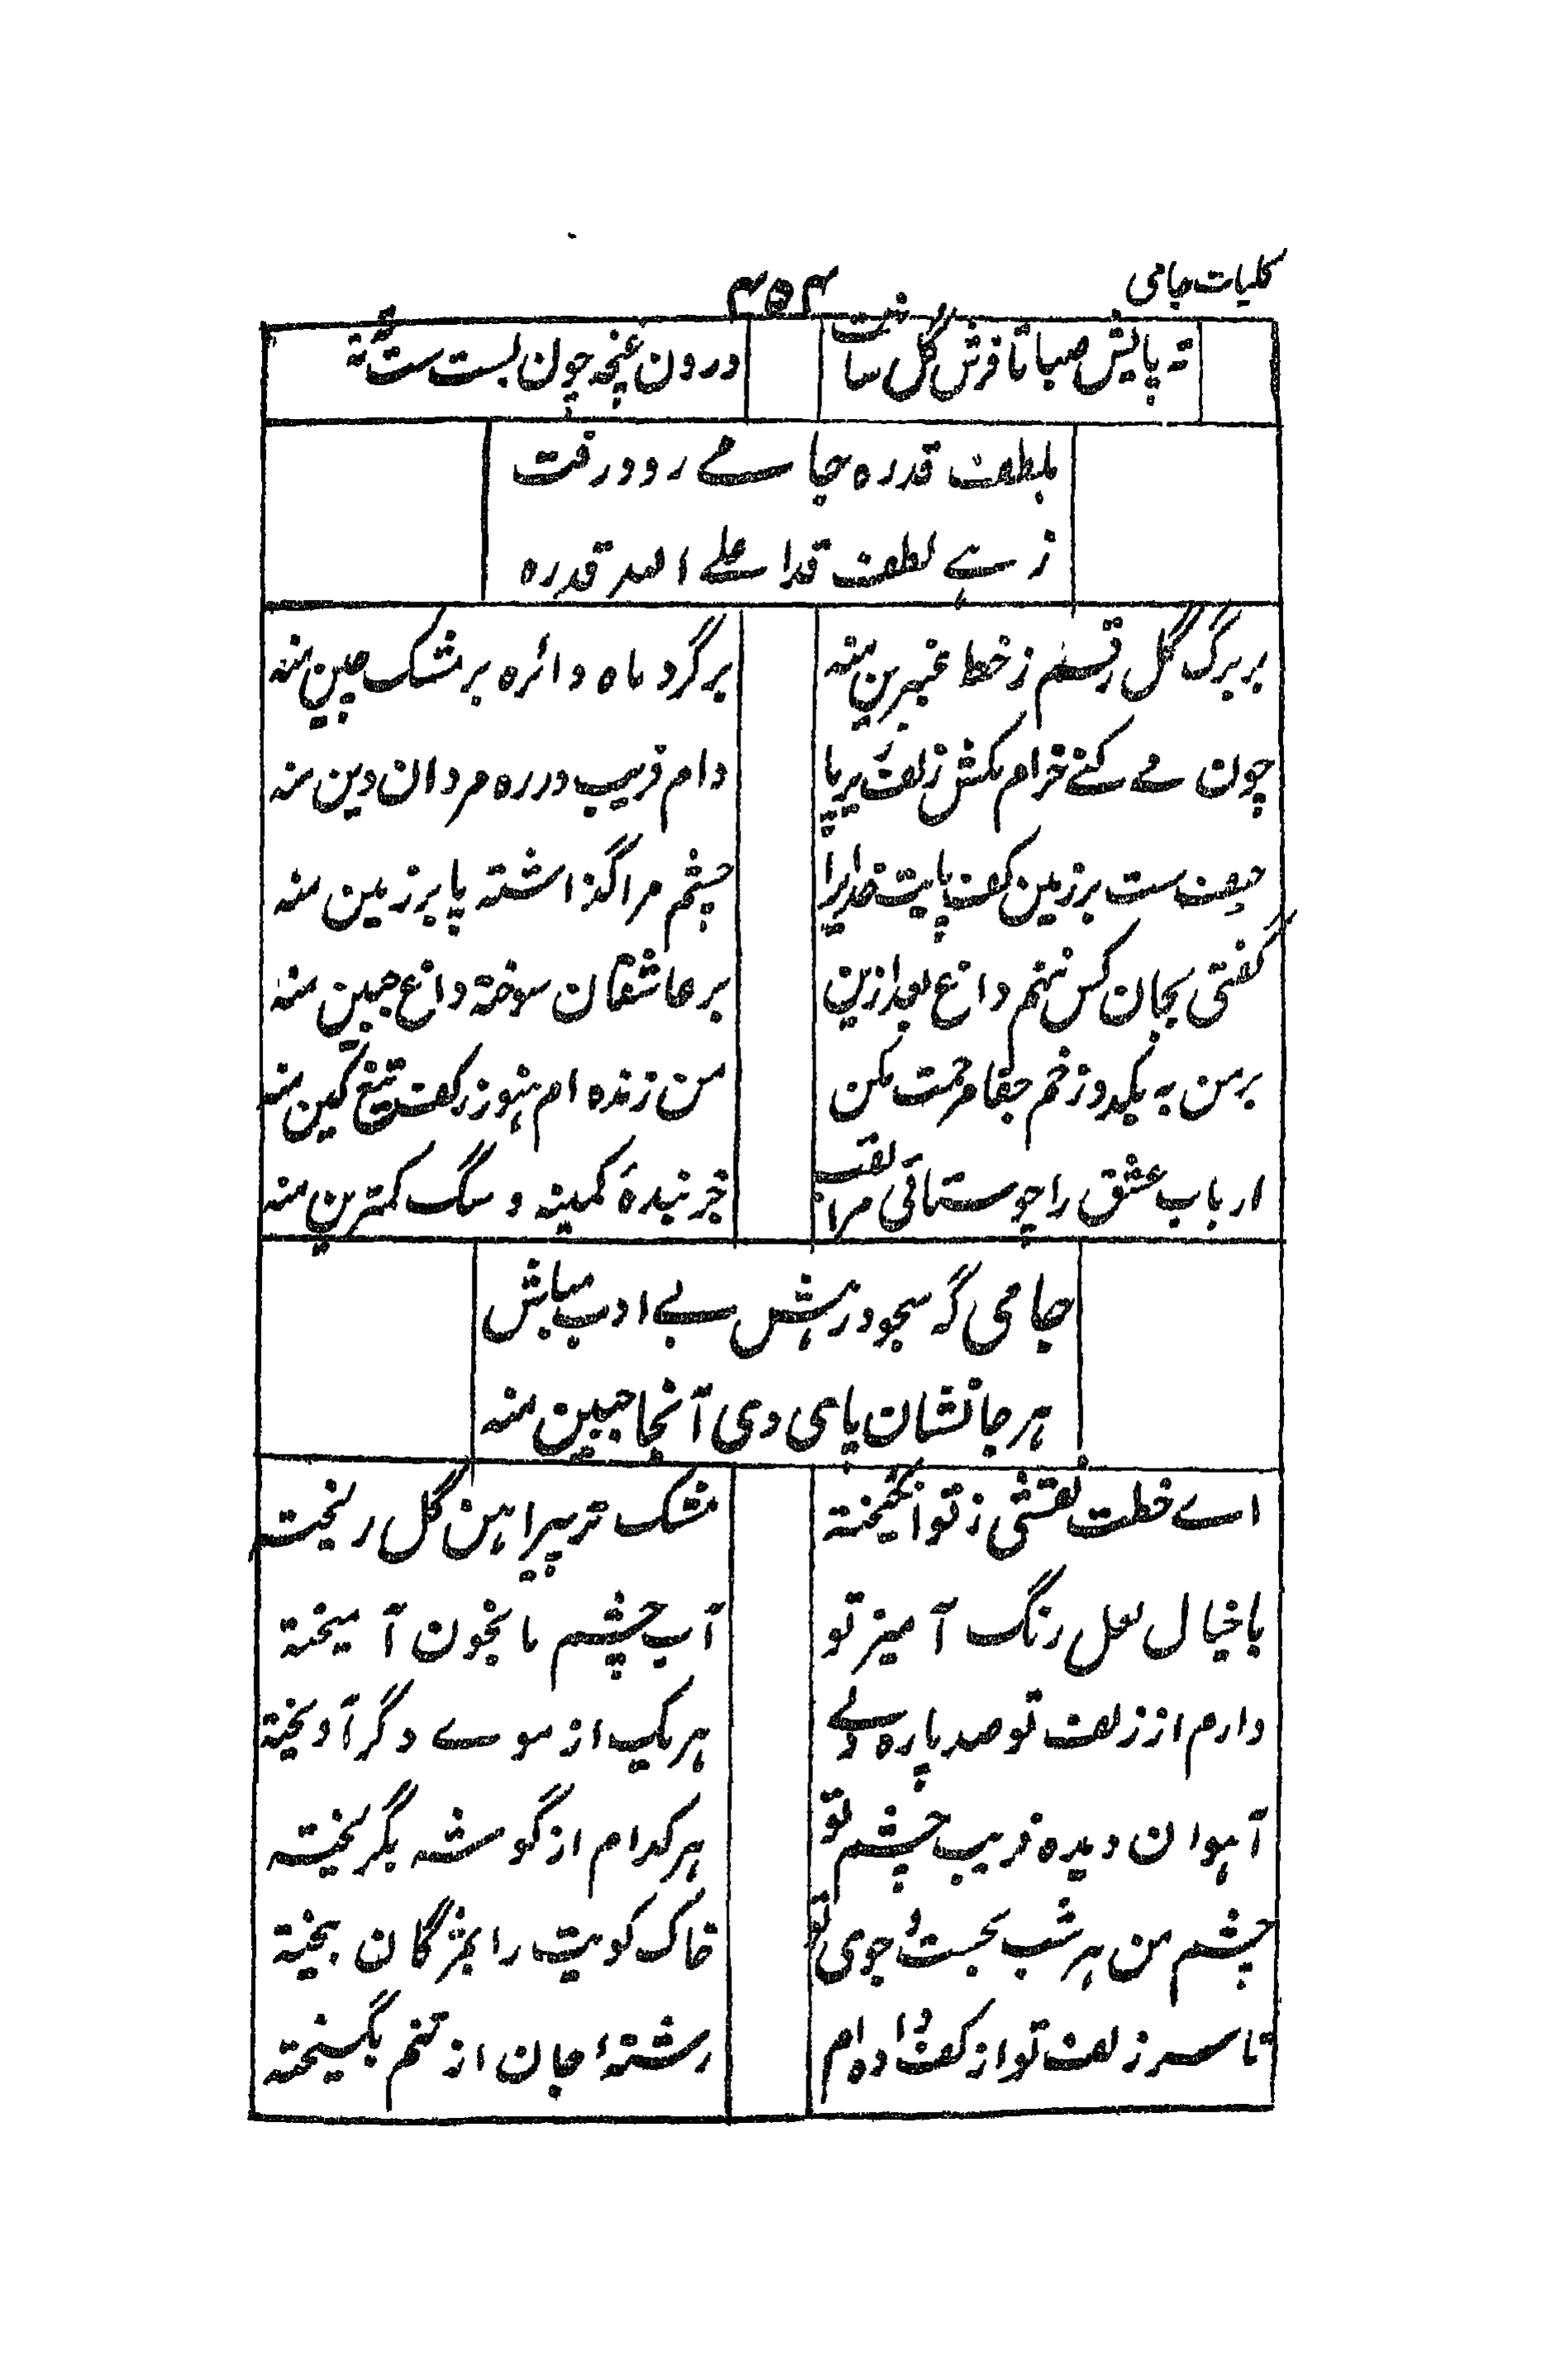 کلیات جامی
۴۵۴
ته پایش صبا تا فرش گل ساخت
درون غنچه چون بست ست ته
بلطف قدره جامے رو ورفت
زہے لطف قدا علے الله قدره
بر برگ گل رقم ز خط عنبرین منه
بر گرد ماه دائره بر مشک چین منه
چون مے کنے خرام مکش زلف زیر پا
دام فریب در ره مردان دین منه
حیف ست بر زمین کف پایت خدایرا
چشم مرا گذاشته پا بر زمین منه
گفتی بجان کس ننهم داغ بعد ازین
بر عاشقان سوخته داغ جبین منه
بر من به یکدو زخم جفا مرحمت مکن
من زنده ام هنوز ز کف تیغ کین منه
ارباب عشق را چو ستائی مرا لقب
جز بندهٔ کمینه و سگ کمترین منه
جامی گه سجود رهش بے ادب مباش
هر جا نشان پای دی آنجا جبین منه
اے خطت نقشی ز نو انگیخته
مشک تر پیراهن گل ریخت
با خیال لعل رنگ آمیز تو
آب چشم ما بخون آمیخته
دارم از زلف تو صد پاره دلے
هر یک از موے دگر آویخته
آهوان دیده فریب چشم تو
هر کدام از گوشه بگریخته
چشم من هر شب بجست و جوی تو
خاک کویت را بمژگان بیخته
تا سر زلف تو از کف داده ام
رشتهٔ جان از تنم بگسیخته